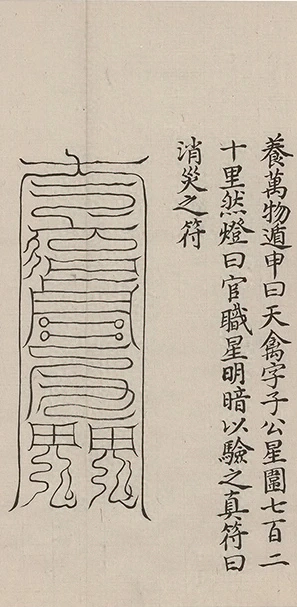 養萬物遁甲曰天禽字子公星圍七百二
十里然燈曰官職星明暗以驗之真符曰
消災之符